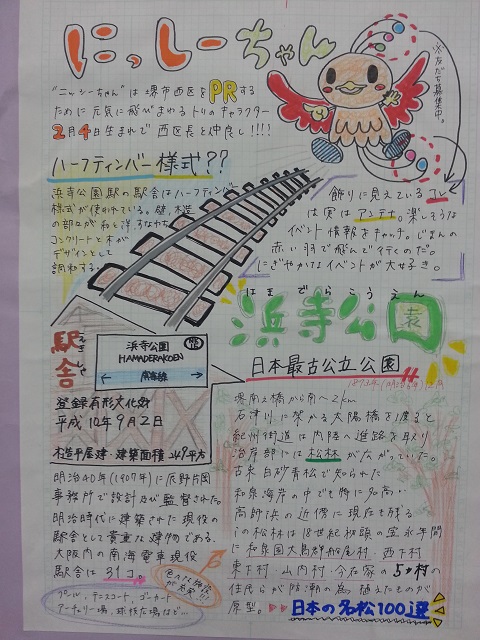 にっしーちゃん
"ニッシーちゃん"は堺市西区をPRする
ために元気に飛びまわるトリのキャラクター
2月4日生まれで西区長と仲良し!!!!
※友だち募集中。
ハーフティンバー様式??
浜寺公園駅の駅舎はハーフティンバー
様式が使われている。壁、木造
の部分が
コンクリートと木が
デザインとして
調和する。
飾りに見えているコレ
は実はアンテナ。楽しそうな
イベント情報をキャッチ。じまんの
赤い羽で飛んで行くのだ。
にぎやかなイベントが大好き。
はまでらこうえん
浜寺公園
駅舎
えきしゃ
浜寺公園
HAMADERAKOEN
南海線
日本最古公立公園
登録有形文化財
平成10年9月2日
木造平屋建・建築面積249平方
明治40年(1907年)に辰野片岡
事務所で設計及び監督された。
明治時代に建築された現役の
駅舎として貴重な建物である。
大阪内の南海電車現役
駅舎は31コ。
色んな施設が充実!!!
プール、テニスコート、ゴーカート
アーチェリー場、球技広場など…
堺南土橋から南へ2km
石津川に架かる太陽橋を渡ると
紀州街道は内陸へ進路を取り
沿岸部には松林が広がっていた。
古来白砂青松で知られた
和泉海岸の中でも特に名高い
高師浜の近傍に現在も残る
この松林は18世紀初頭の宝永年間
に和泉国大鳥郡船尾村・西下村
東下村・山内村・今在家の5ヶ村の
住民らが防潮の為、植えたものが
原型。▶▶日本の名松100選